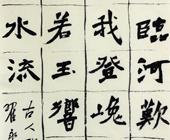 臨河歎
我登
若玉響
水流
古人
翟永